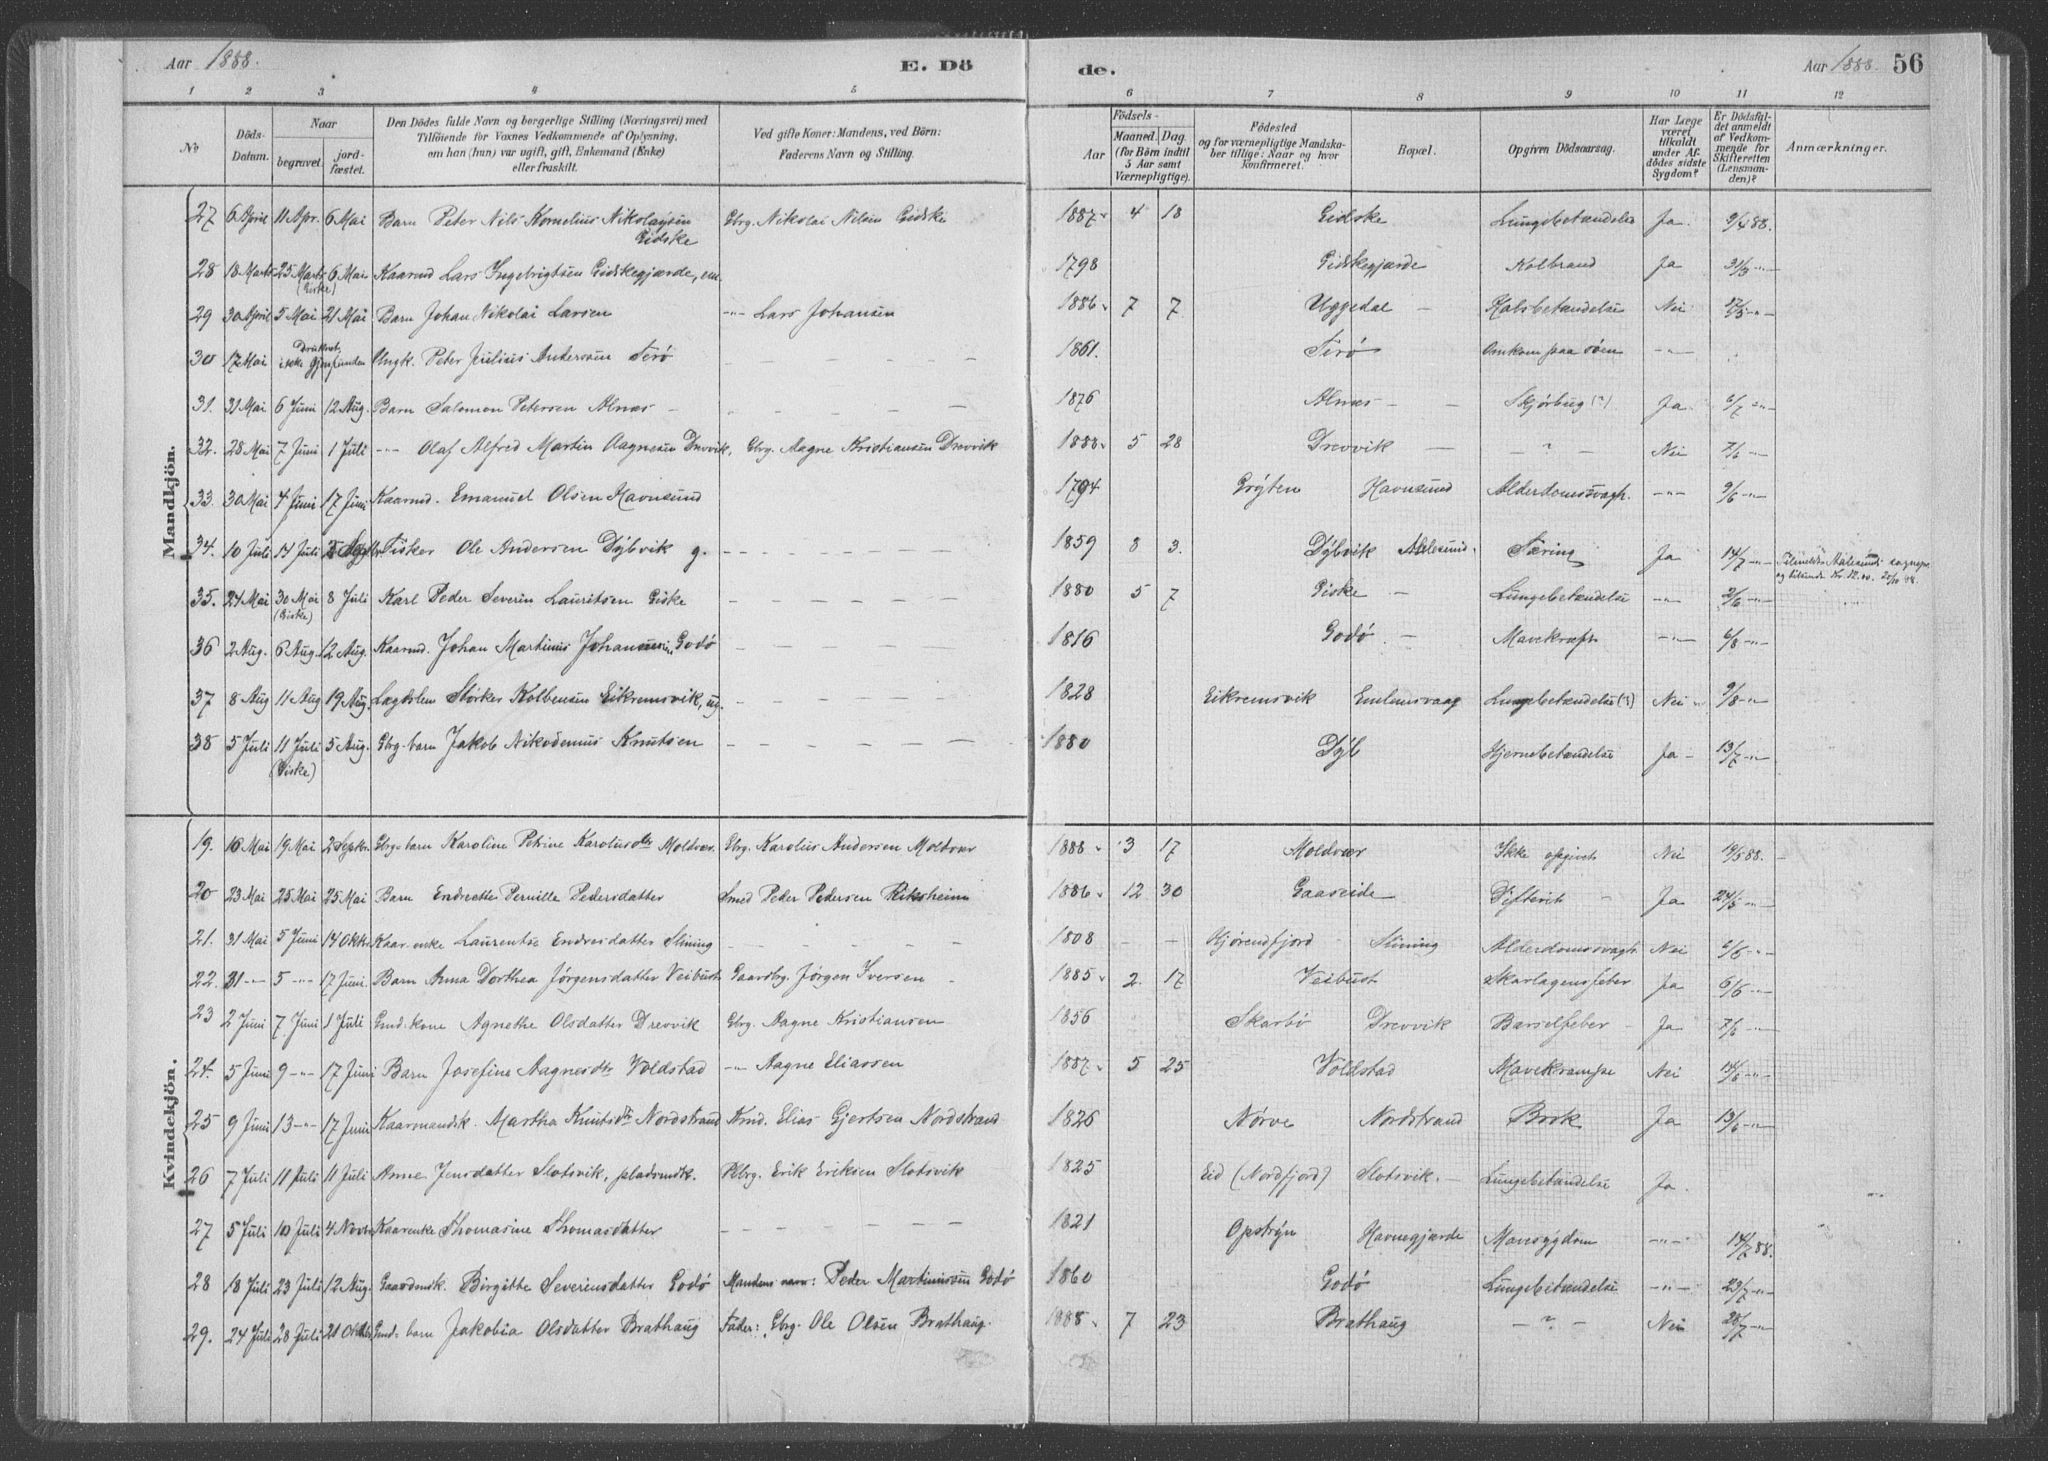 Aar 1888.
E. Dö
de.
Aar 1888.
56
1 2 3 4 5 6 7 8 9 10 11 12
No
Döds-
Datum.
Naar
begravet.
jord-
fæstet.
Den Dödes fulde Navn og borgerlige Stilling (Næringsvei) med
Tilföiende for Voxnes Vedkommende af Oplysning,
om han (hun) var ugift, gift, Enkemand (Enke)
eller fraskilt.
Ved gifte Koner: Mandens, ved Börn:
Faderens Navn og Stilling.
Födsels-
Aar
Maaned. Dag.
(for Börn indtil
5 Aar samt
Værnepligtige).
Födested
og for værnepligtige Mandska-
ber tillige: Naar og hvor
konfirmeret.
Bopæl.
Opgiven Dödsaarsag.
Har Læge
været
tilkaldt
under Af-
dödes sidste
Sygdom?
Er Dödsfal-
det anmeldt
af Vedkom-
mende for
Skifteretten
(Lensman-
den)?
Anmærkninger.
Mandkjön.
27 6 April 11 Apr. 6 Mai Barn Peter Nils Kornelius Nikolaysen Gbrg. Nikolai Nilsen Gidske 1887 4 18 Gidske Lungebetændelse Ja 9/4 88.
Gidske
28 18 Marts 25 Marts 6 Mai Kaarmd Lars Ingebrigtsen Gidskegjærde, em. 1798 Gidskegjærde Kolbrand Ja 31/3 -"-
(Giske)
29 30 April 5 Mai 21 Mai Barn Johan Nikolai Larsen -"- Lars Johansen 1886 7 7 Uggedal - Halsbetændelse Nei
Druknet
30 17 Mai ikke gjenfunden Ungk. Peter Julius Andersen 1861. Omkom paa söen -"-
31. 31 Mai 6 Juni 12 Aug. Barn Salomon Petersen Alnæs 1876 Alnæs - Skjörbug (?) Ja 6/7 -"-
32. 28 Mai 7 Juni 1 Juli -"- Olaf Alfred Martin Aagnesen Drevvik, Gbrg. Aagne Kristiansen Drevvik 1888 5 28 Drevvik - " - Nei 7/6 -"-
33. 30 Mai 4 Juni 17 Juni Kaarmd. Emanuel Olsen Havnsund 1794 Gröyten Havnsund Alderdomssvagh. -"- 9/6 -"-
34. 10 Juli 14 Juli Fisker Ole Andersen Dybvik g. 1859 8 3. Dybvik Aalesund. Tæring Ja 14/7 -"-
35. 24 Mai 30 Mai 8 Juli Karl Peder Severin Lauritsen Giske 1880 5 7 Giske - Lungebetændelse -"- 2/6 -"-
(Giske)
36 2 Aug. 6 Aug. 12 Aug. Kaarmd. Johan Martinus Johannesen Godö 1816 Godö - -"- 6/8 -"-
37 8 Aug 11 Aug 19 Aug. Lægdslem Störker Kolbensen Eikremsvik, ug. 1828 Eikremsvik Emlemsvaag Lungebetændelse (?) Nei 9/8 -"-
38 5 Juli 11 Juli 5 Aug. Gbrg-barn Jakob Nikodemus Knutsen 1880 Dyb Hjernebetændelse Ja - 13/7 -"-
(Giske)
Kvindekjön.
19. 16 Mai 19 Mai 2 Septbr. Gbrg-barn Karoline Petrine Karolusdtr Moldvær. Gbrg. Karolus Andersen Moldvær 1888 3 17 Moldvær Ikke opgivet Nei 19/5 88.
20 23 Mai 25 Mai 25 Mai Barn Endreette Pernille Pedersdatter Smed Peder Pedersen Riksheim 1886 12 30 Gaaseide Difterit Ja 24/5 -"-
21. 31 Mai 5 Juni 14 Oktbr Kaar-enke Laurentse Endresdatter Slining 1808 - - Hjörendfjord Slining Alderdomssvagh Nei 6/6 -"-
22. 31 -"- 5 -"- 17 Juni Barn Anna Dorthea Jörgensdatter Veibust Gaardbg. Jörgen Iversen 1885 2. 17 Veibust Skarlagensfeber Ja 6/6 -"-
23 2 Juni 7 Juni 1 Juli Gmd-kone Agnethe Olsdatter Drevvik Gbrg. Aagne Kristiansen 1856 Skarbö Drevvik Barselfeber Ja 7/6 -"-
24. 5 Juni 9 -"- 17 Juni Barn Josefine Aagnesdtr Voldstad -"- Aagne Eliassen 1887 5 25 Voldstad Mavekrampe Nei 14/6 -"-
25 9 Juni 13 -"- 17 Juni Kaarmandsk. Martha Knutsdtr Nordstrand Krmd. Elias Gjertsen Nordstrand 1826 Nörve Nordstrand Brok Ja 13/6 -"-
26 7 Juli 11 Juli 11 Juli Anne Jensdatter Slotsvik, pladsmdk. Plbrg. Erik Eriksen Slotsvik 1825 Eid (Nordfjord) Slotsvik. - Lungebetændelse Ja.
27 5 Juli 10 Juli 4 Novbr Kaarenke Thomasine Thomasdatter 1821 Opstryn Havnegjærde Mavesygdom -"- 14/7 88.
28 18 Juli 23 Juli 12 Aug. Gaardmsk. Birgitte Severinsdatter Godö Mandens navn: Peder Martinussen Godö 1860 Godö Lungebetændelse -"- 23/7 -"-
29. 24 Juli 28 Juli 21 Oktbr Gmd-barn Jakobia Olsdatter Brathaug Fader: Gbrg. Ole Olsen Brathaug. 1888 7 23 Brathaug - ? - Nei 28/7 -"-